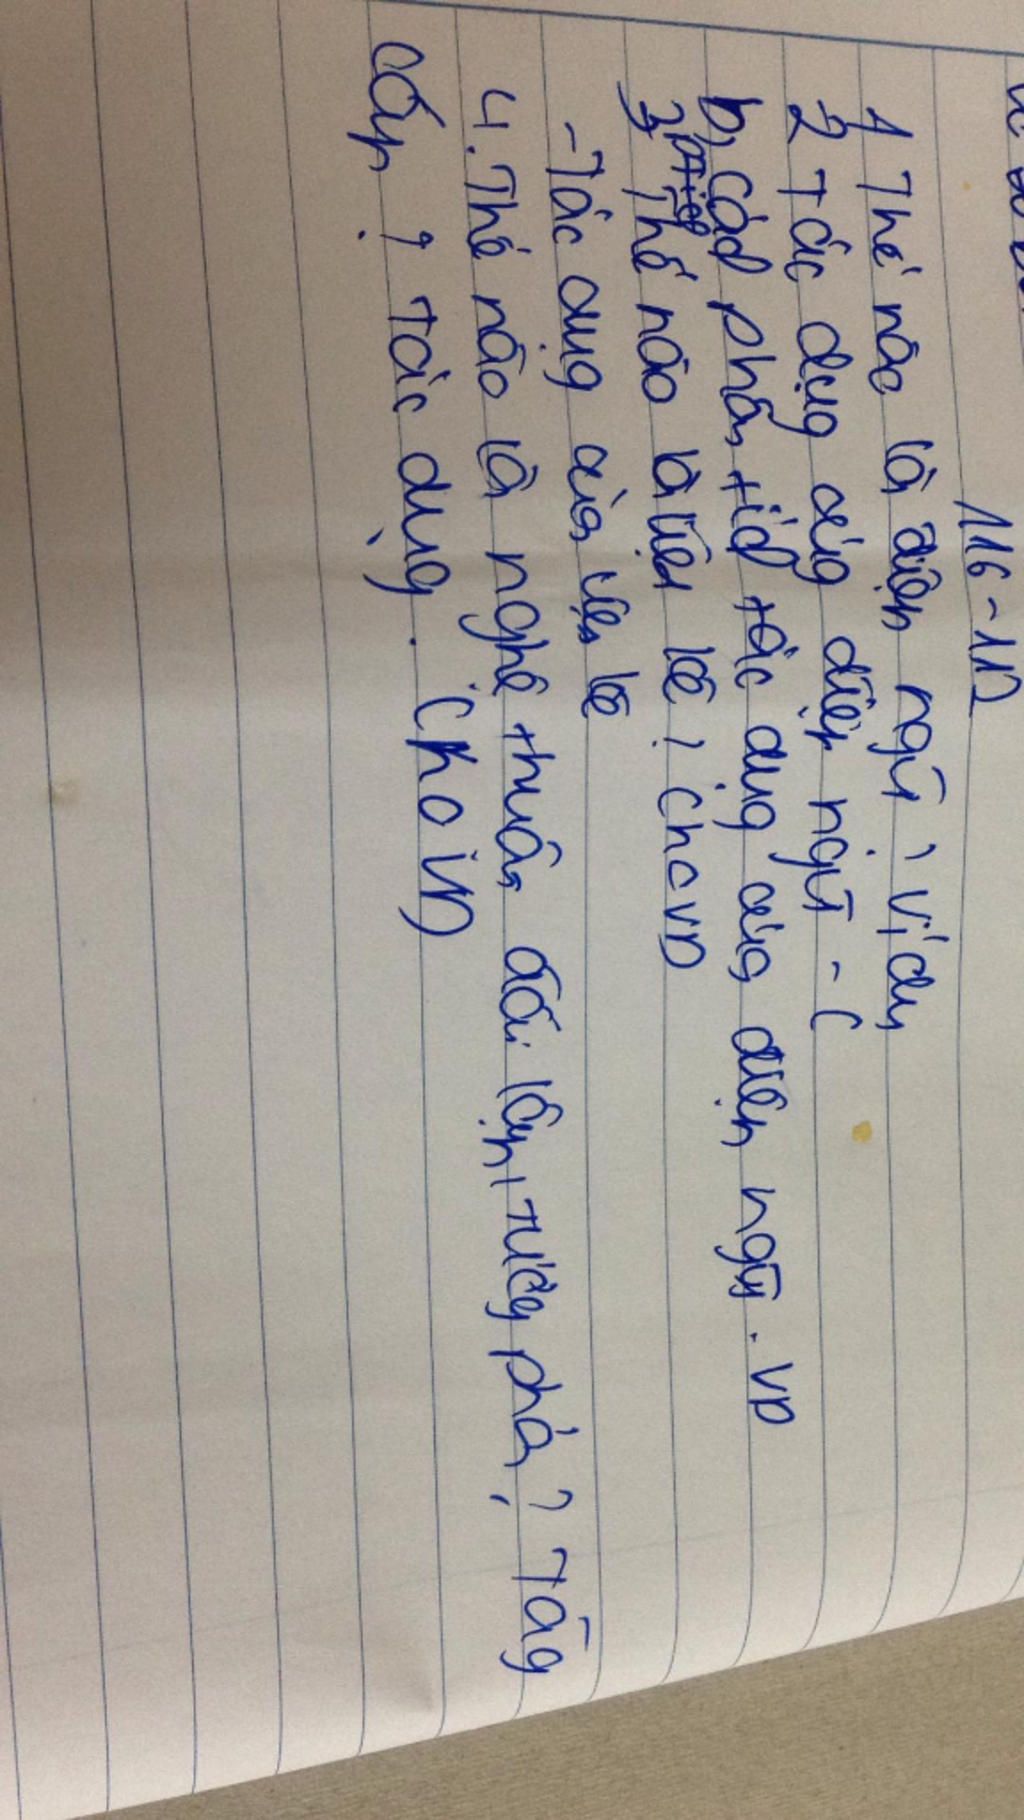 116-117
1 Thế nào là điệp ngữ? Ví dụ
2 Tác dụng của điệp ngữ - (
b, cách phân tích tác dụng của điệp ngữ. VD
3, Thế nào là liệt kê? cho VD
- Tác dụng của liệt kê
4. Thế nào là nghệ thuật đối lập, tương phản? Tăng
cấp? Tác dụng. (cho VD)